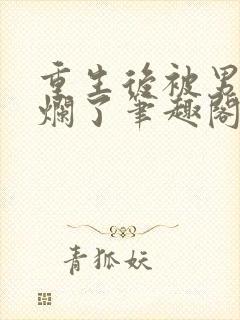 重生後被男
爛了筆趣閣
青狐妖